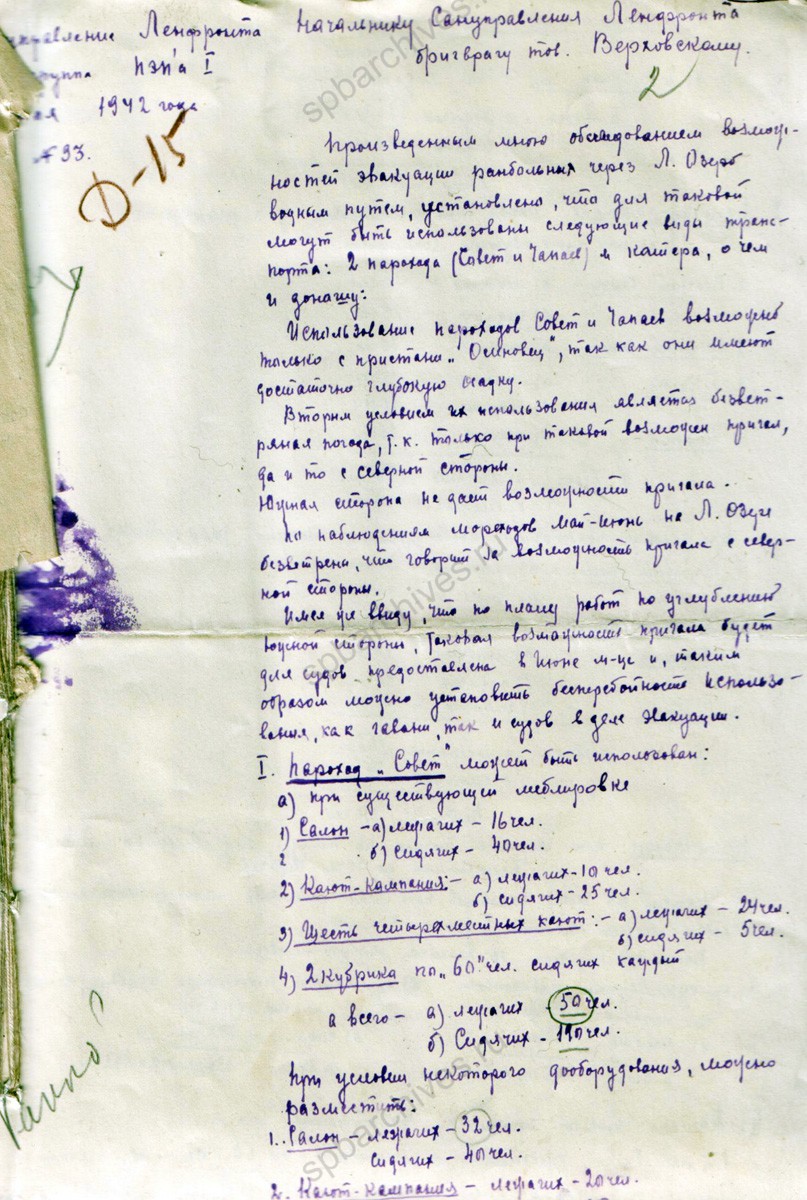 управление Ленфронта
Начальнику Сануправления Ленфронта
бригврачу тов. Верховскому.
группа ПЭП'а I
2
1942 года
№ 93.
Д-15
Произведенным мною обследованием возмож-
ностей эвакуации ранбольных через Л. Озеро
водным путем, установлено, что для таковой
могут быть использованы следующие виды транс-
порта: 2 парохода (Совет и Чапаев) и катера, о чем
и доношу:
Использование пароходов Совет и Чапаев возможно
только с пристани "Осиновец", так как они имеют
достаточно глубокую осадку.
Вторым условием их использования является безвет-
ряная погода, т.к. только при таковой возможен причал,
да и то с северной стороны.
Южная сторона не дает возможности причала.
По наблюдениям мореходов май-июнь на Л. Озере
безветрены, что говорит за возможность причала с север-
ной стороны.
Имея уж ввиду, что по плану работ по углублению
южной стороны, таковая возможность причала будет
для судов предоставлена в Июне м-це и, таким
образом можно установить бесперебойность использо-
вания, как гавани, так и судов в деле эвакуации.
I. Пароход "Совет" может быть использован:
а) при существующей меблировке
1) Салон - а) лежачих - 16 чел.
б) сидячих - 40 чел.
2) Кают-кампания: - а) лежачих - 10 чел.
б) сидячих - 25 чел.
3) Шесть четырехместных кают: - а) лежачих - 24 чел.
б) сидячих - 5 чел.
4) 2 кубрика по "60" чел. сидячих каждый
а всего - а) лежачих - 50 чел.
б) Сидячих - 190 чел.
При условии некоторого дооборудования, можно
разместить:
1. Салон - лежачих - 32 чел.
сидячих - 40 чел.
2. Кают-кампания - лежачих - 20 чел.
spbarchives.ru
spbarchives.ru
spbarchives.ru